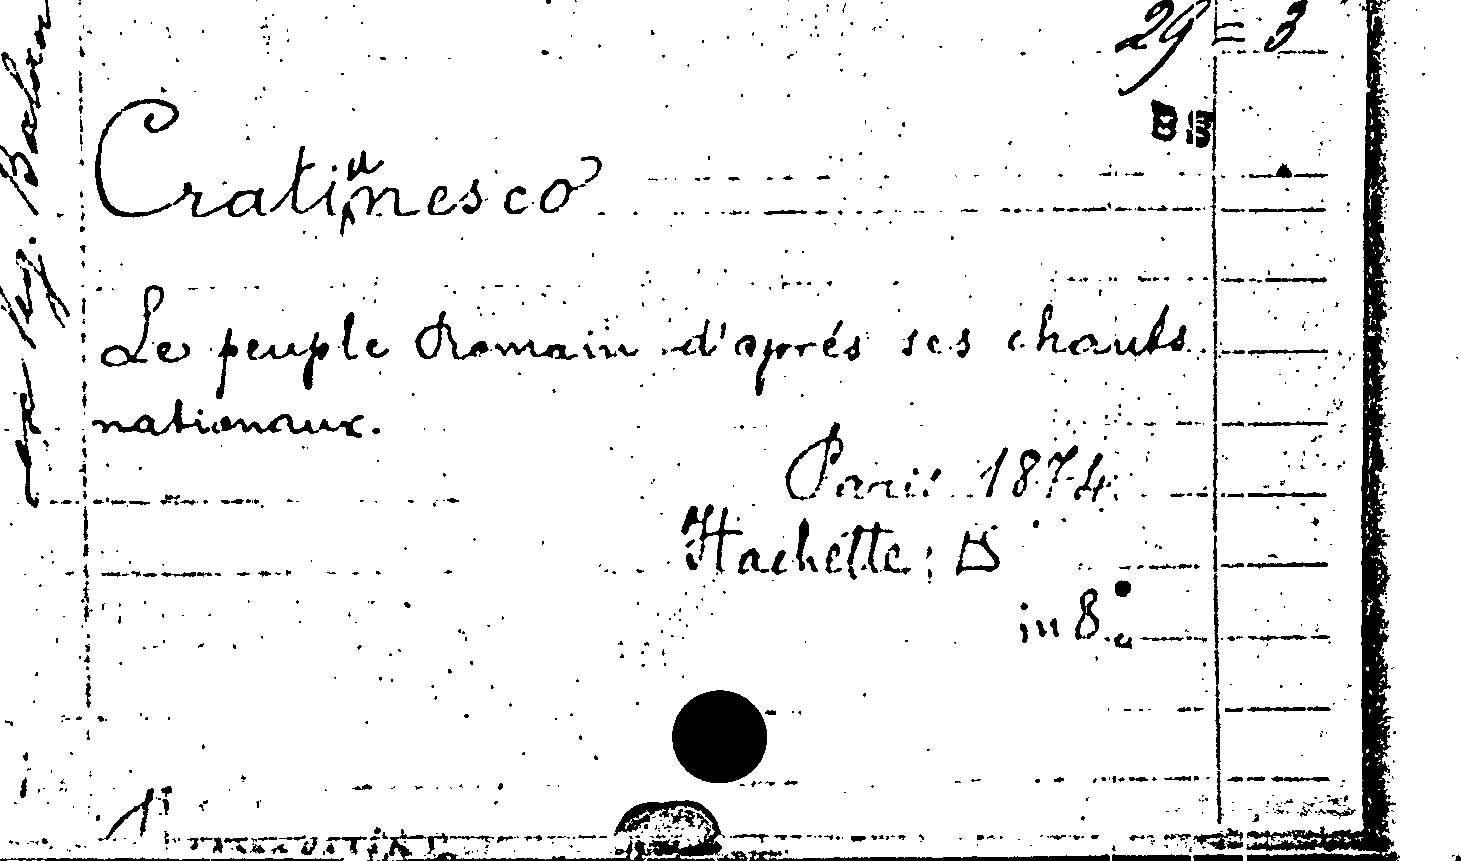 29 = 3
BS
Cratiunesco
Le peuple Romain d'aprés ses chants
nationaux.
Paris 1874
Hachette;
in 8.
1